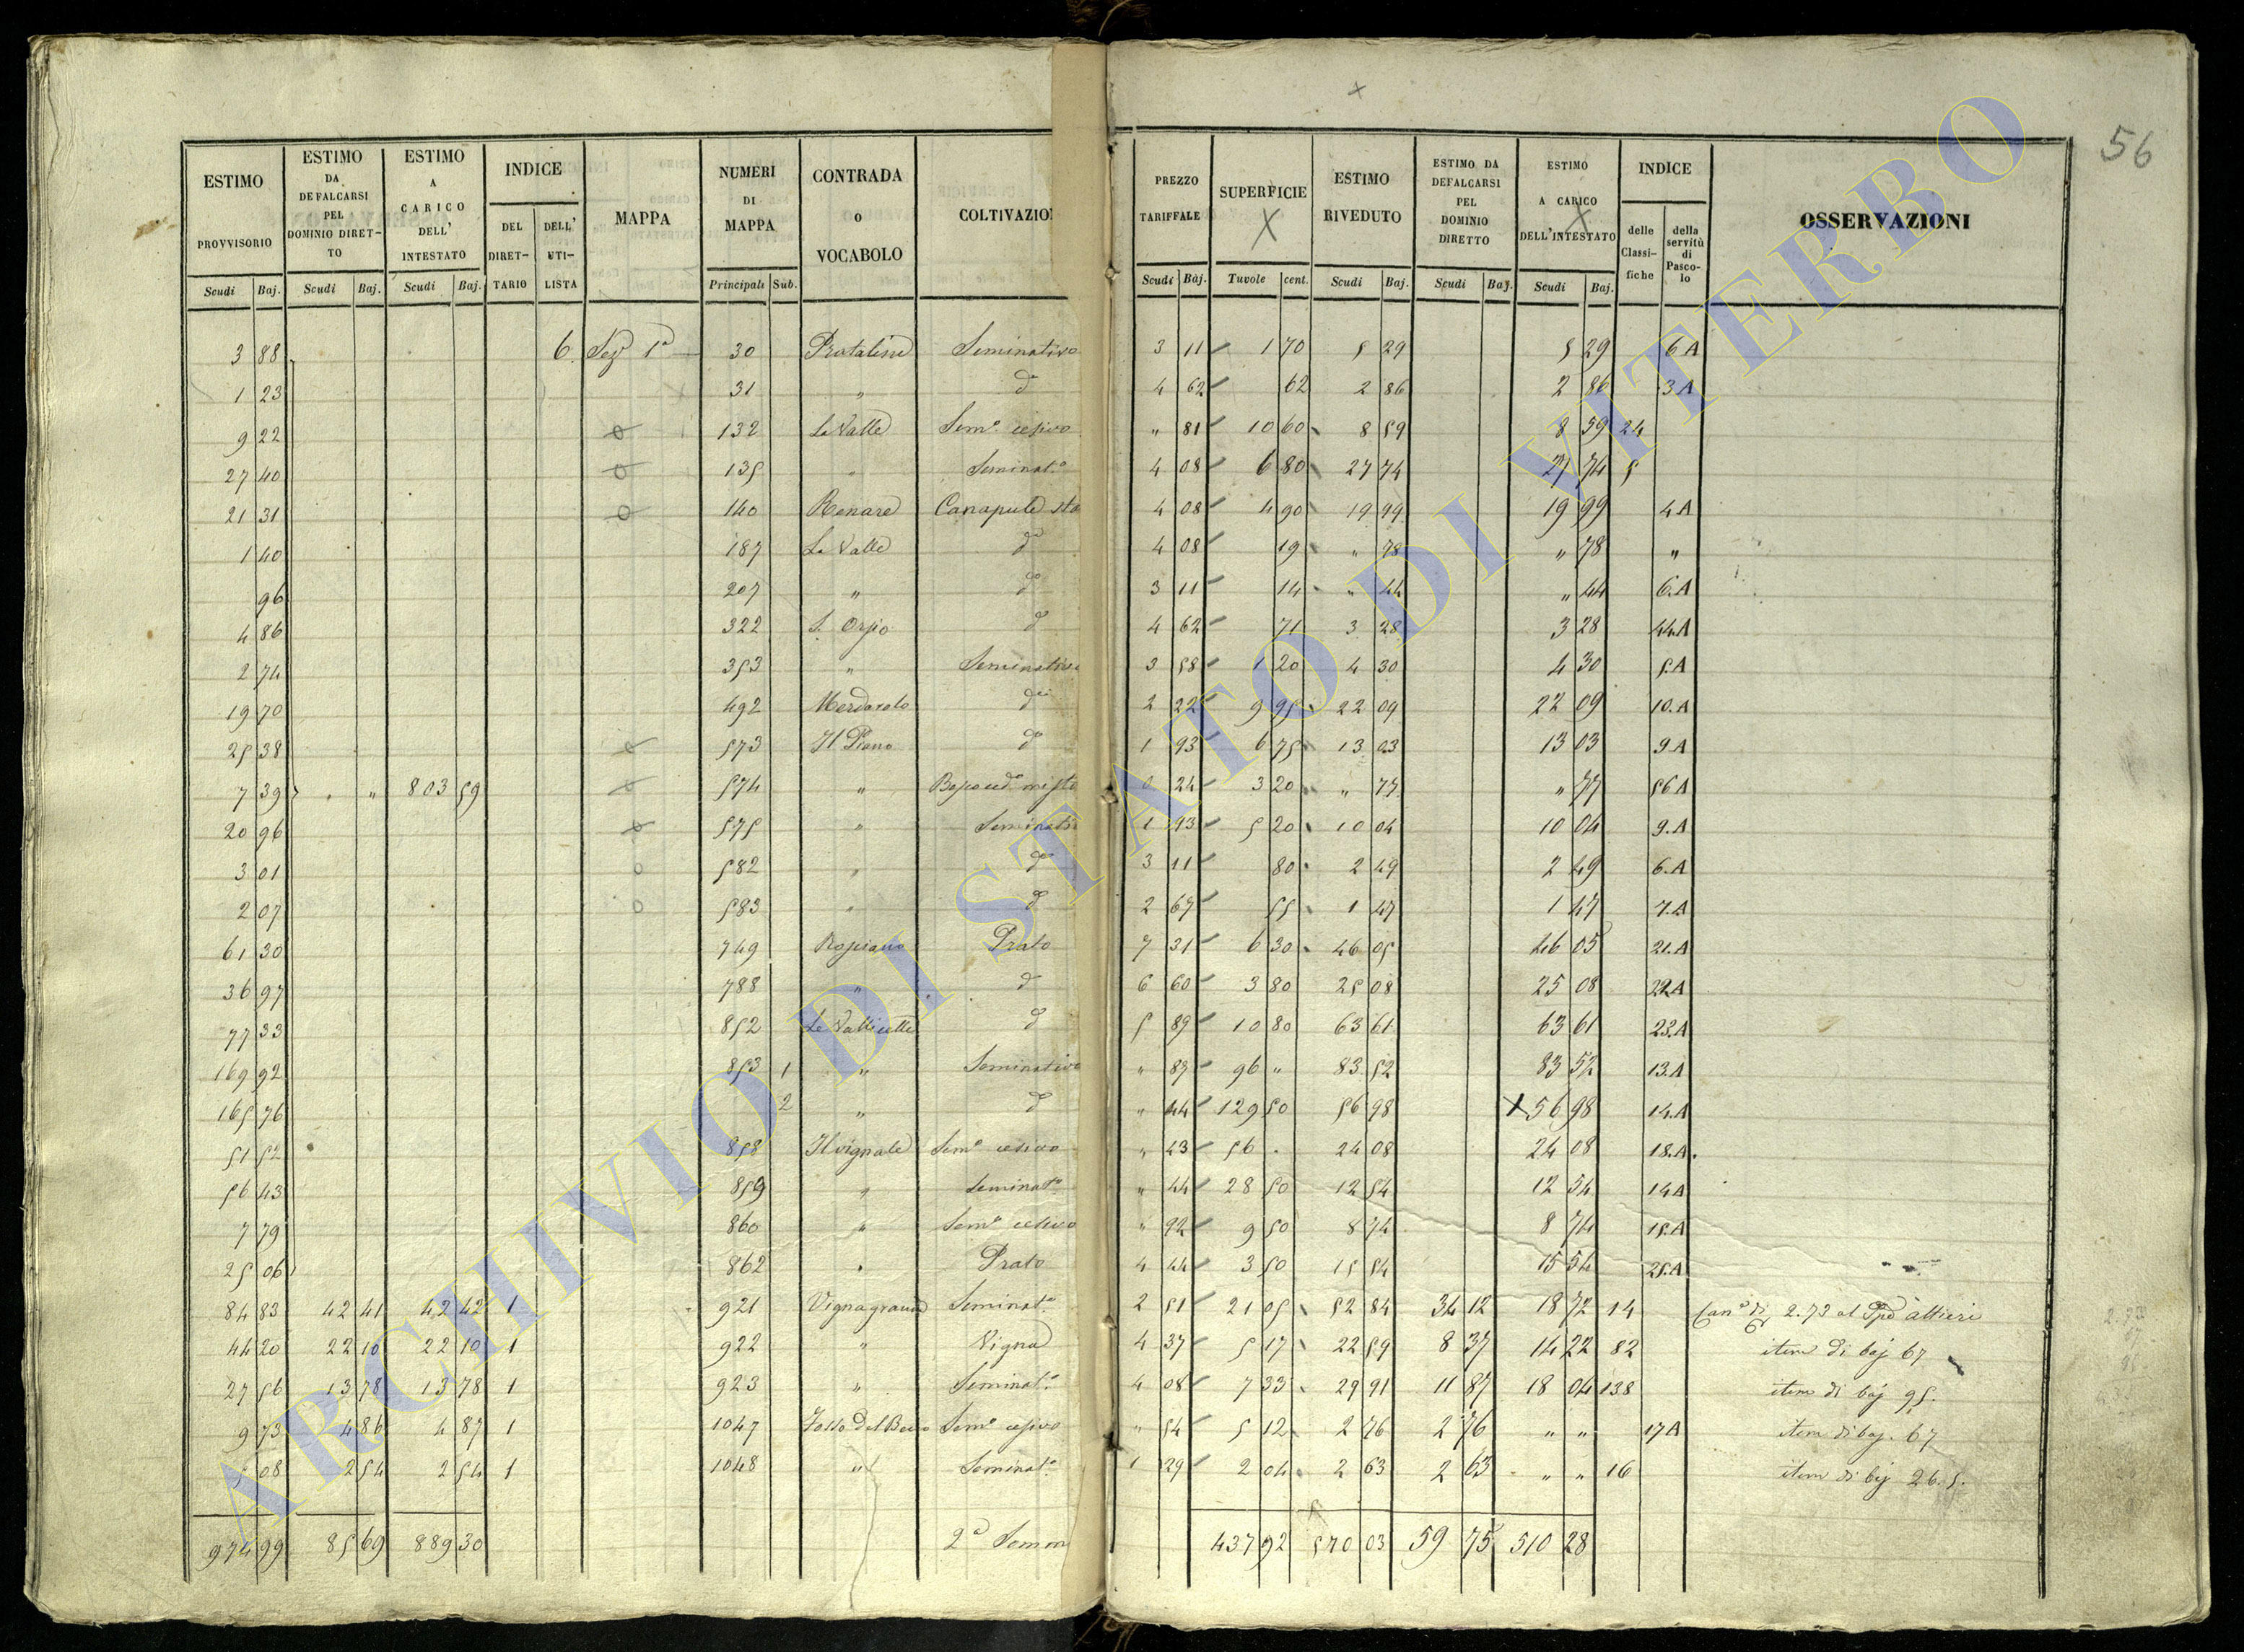 56
ESTIMO PROVVISORIO | ESTIMO DA DEFALCARSI PEL DOMINIO DIRETTO | ESTIMO A CARICO DELL' INTESTATO | INDICE DEL DIRETTARIO | DELL' UTILISTA | MAPPA | NUMERI DI MAPPA | CONTRADA O VOCABOLO | COLTIVAZIO | PREZZO TARIFFALE | SUPERFICIE | ESTIMO RIVEDUTO | ESTIMO DA DEFALCARSI PEL DOMINIO DIRETTO | ESTIMO A CARICO DELL'INTESTATO | INDICE delle Classifiche | della servitù di Pascolo | OSSERVAZIONI
Scudi Baj. | Scudi Baj. | Scudi Baj. | Principali Sub. | Scudi Baj. | Tavole cent. | Scudi Baj. | Scudi Baj. | Scudi Baj.
3 88 6 Sez 1a 30 Pratalini Seminativo 3 11 1 70 5 29 5 29 6 A
1 23 31 " do 4 62 62 2 86 2 86 3 A
9 22 132 La Valle Semo cesivo " 81 10 60 8 59 8 59 24
27 40 135 " Seminato 4 08 6 80 27 74 27 74 5
21 31 140 Renare Canapule sto 4 08 4 90 19 99 19 99 4 A
1 40 187 La Valle do 4 08 19 " 78 " 78 "
96 207 " do 3 11 14 " 44 " 44 6.A
4 86 322 S. Orsio do 4 62 71 3 28 3 28 44.A
2 74 353 " Seminativo 3 58 1 20 4 30 4 30 5.A
19 70 492 Merdarolo do 2 22 9 95 22 09 22 09 10.A
25 38 573 Il Piano do 1 93 6 75 13 03 13 03 9.A
7 39 " " 803 59 574 " misto 0 24 3 20 " 77 " 77 56 A
20 96 575 " Seminati 1 93 5 20 10 04 10 04 9.A
3 01 582 " do 3 11 80 2 49 2 49 6.A
2 07 583 " do 2 67 55 1 47 1 47 7.A
61 30 749 Ropiano Prato 7 31 6 30 46 05 46 05 21.A
36 97 788 " do 6 60 3 80 25 08 25 08 22A
77 33 852 Le Vallicelle do 5 89 10 80 63 61 63 61 23.A
169 92 853 1 " Seminativo " 87 96 " 83 52 83 52 13.A
165 76 2 " do " 44 129 50 56 98 X 56 98 14.A
51 52 858 Il vignale Semo cesivo " 43 56 . 24 08 24 08 18.A.
56 43 859 " Seminato " 44 28 50 12 54 12 54 14A
7 79 860 " Semo cesivo " 92 9 50 8 74 8 74 15.A
25 06 862 " Prato 4 44 3 50 15 54 15 54 25.A
84 83 42 41 42 42 1 921 Vignagrande Seminato 2 51 21 05 52 84 34 12 18 72 14 Cane di 2.73 al Altieri
44 20 22 10 22 10 1 922 " Vigna 4 37 5 17 22 59 8 37 14 22 82 item di baj 67
27 56 13 78 13 78 1 923 " Seminato 4 08 7 33 29 91 11 87 18 04 138 item di baj 95.
9 73 4 86 4 87 1 1047 Fosso Del Semo cesivo " 54 5 12 2 76 2 76 " " 17A item di baj. 67
5 08 2 54 2 54 1 1048 " Seminato 1 29 2 04 2 63 2 63 " " 16 item di baj 26.5.
974 99 85 69 889 30 2a Somm 437 92 570 03 59 75 510 28
ARCHIVIO DI STATO DI VITERBO